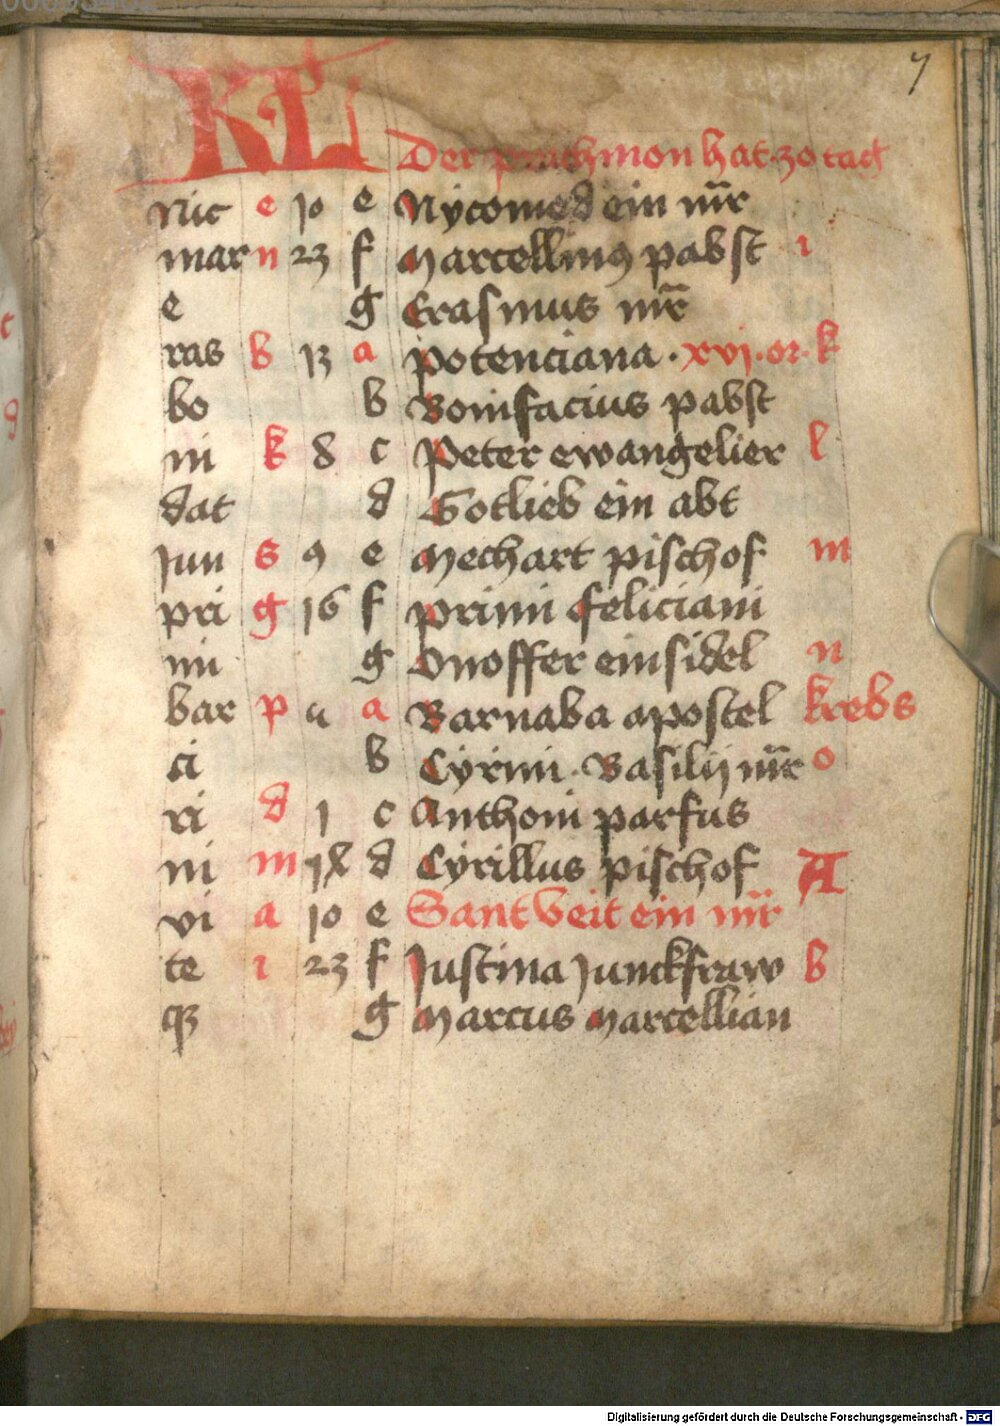 7
KL Der prachmon hat 30 tag
Nic e 10 e Nycomed ein mr̄
mar n 23 f Marcellinus pabst i
e g Erasmus mr̄
ras b 13 a potenciana · xvi · or · k
bo b Bonifacius pabst
ni k 8 c Peter ewangelier l
dat d Gotlieb ein abt
Jun s 9 e Mechart pischof m
pri g 16 f primi feliciani
mi g Onoffer einsidel n
bar p 4 a Barnaba apostel krebs
ci b Cyrini · Basilij mr̄ o
ri d 1 c Anthoni parfus
ni m d Cyrillus pischof A
vi a 10 e Sant Veit ein mr̄
te i 23 f Justina Junckfraw b
qꝫ g Marcus Marcellian
Digitalisierung gefördert durch die Deutsche Forschungsgemeinschaft - DFG